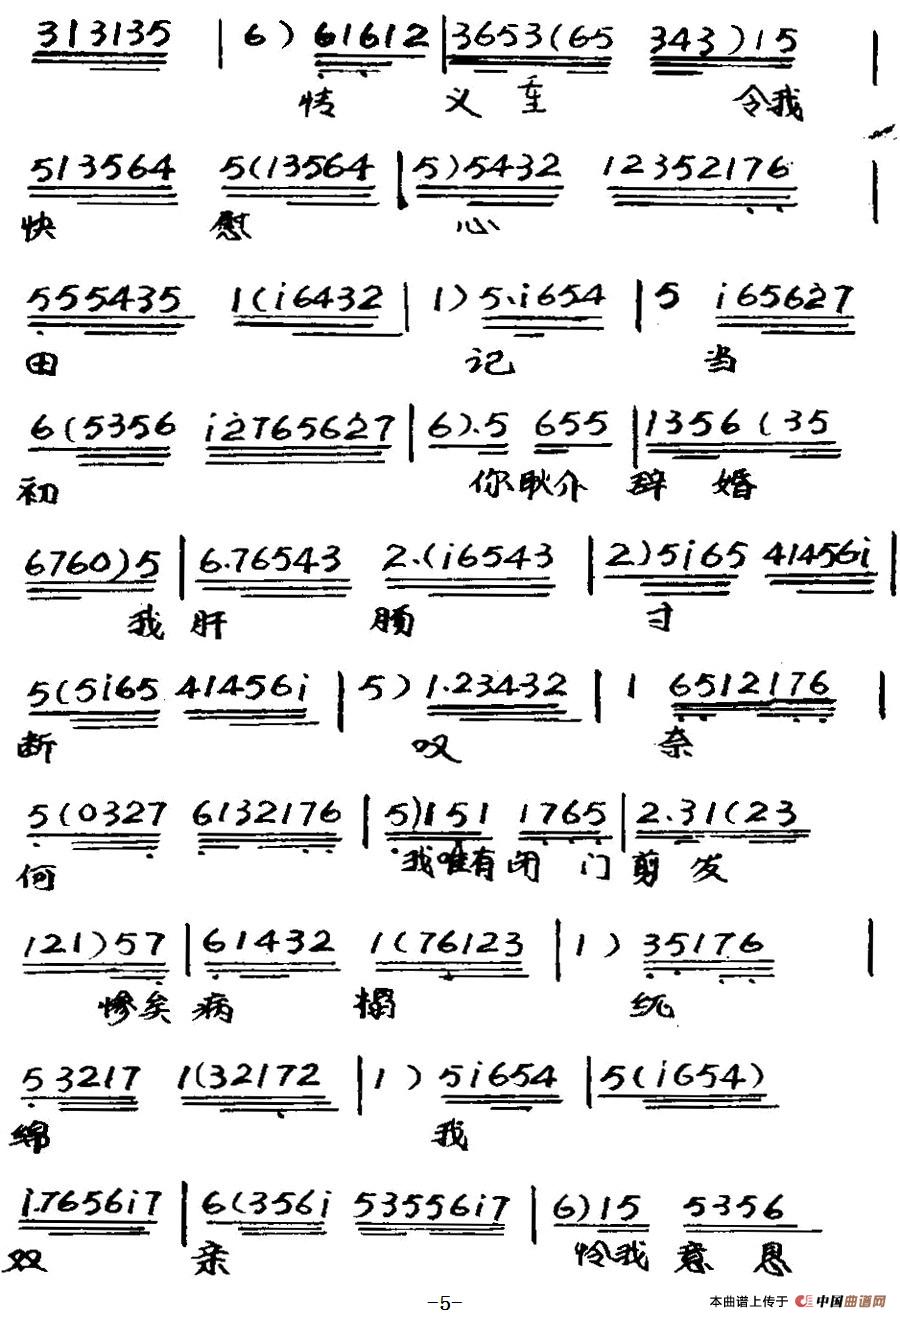 313135 | 6 ) 61612 | 3653(65 343 ) 15 |
情 义 至 令我
513564 5(13564 | 5)5432 12352176 |
快 慰 心
555435 1(i6432 | 1) 5.i654 | 5 i656i27
田 记 当
6(5356 i2765627 | 6).5 655 | 1356 (35
初 你耿介 辞 婚
6760)5 | 6.76543 2.(i6543 | 2)5i65 41456i |
我 肝 肠 寸
5(5i65 41456i | 5 ) 1.23432 | 1 6512176 |
断 叹 奈
5(0327 6132176 | 5)151 1765 | 2.31(23
何 我唯有闭 门 剪 发
121)57 | 61432 1(76123 | 1 ) 35176 |
惨矣 病 榻 缠
53217 1(32172 | 1 ) 5i654 | 5(i654)
绵 我
i.7656i7 | 6(356i 53556i7 | 6)15 5356
双 亲 怜我 意 恩
-5-
本曲谱上传于 中国曲谱网